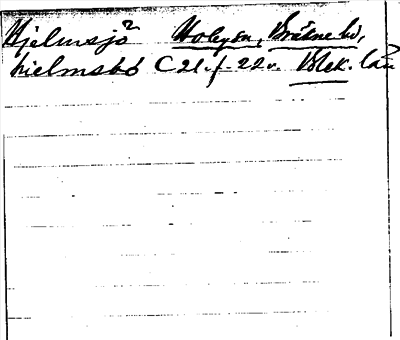 Hjelmsjö? Hoby sn, Bräkne hd,
hielmsbö C 21 f - 22 v. Blek. län